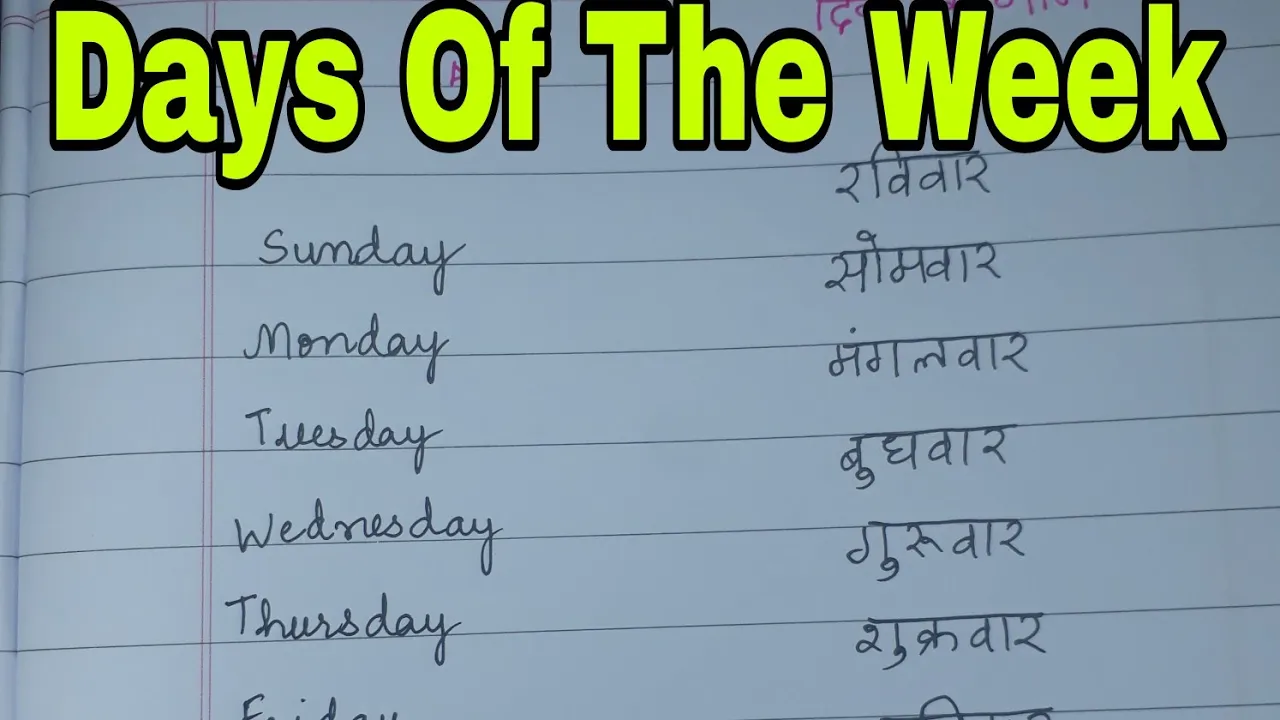 Days Of The Week
Sunday रविवार
Monday सोमवार
Tuesday मंगलवार
Wednesday बुधवार
Thursday गुरूवार
Friday शुक्रवार